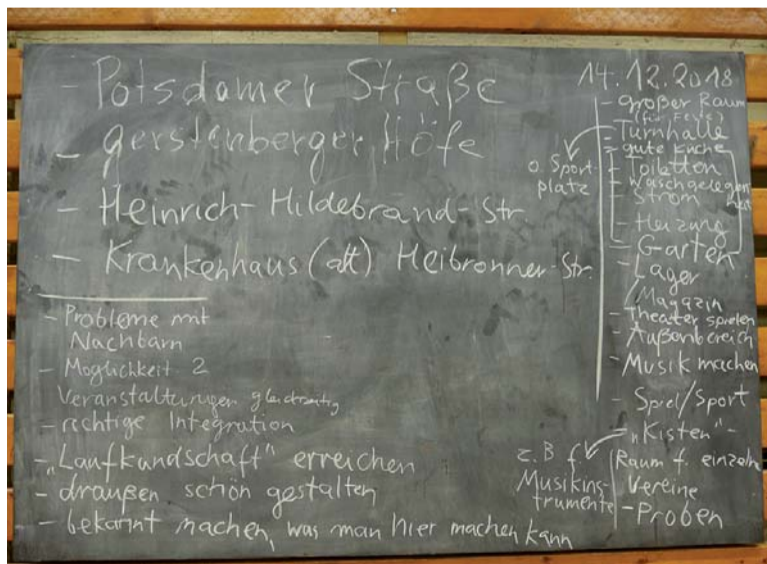 - Potsdamer Straße
- gerstenberger Höfe
- Heinrich-Hildebrand-Str.
- Krankenhaus (alt) Heibronner-Str.
- Probleme mit
Nachbarn
- Möglichkeit 2
Veranstaltungen gleichzeitig
- richtige Integration
- „Laufkundschaft" erreichen
- draußen schön gestalten
- bekannt machen, was man hier machen kann
14.12.2018
- großer Raum
(für Feste)
- Turnhalle
o. Sport-
platz
- gute Küche
- Toiletten
- Waschgelegen
heit
- Strom
- Heizung
- Garten
- Lager
/Magazin
- Theater spielen
- Außenbereich
- Musik machen
- Spiel/Sport
- „Kisten"-
z. B f.
Musikins-
trumente
Raum f. einzeln
Vereine
- Proben